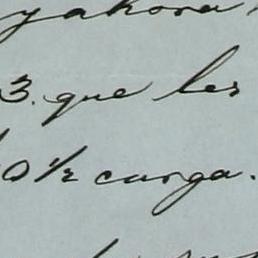 y ahora
3. que les
0 1/2 carga.